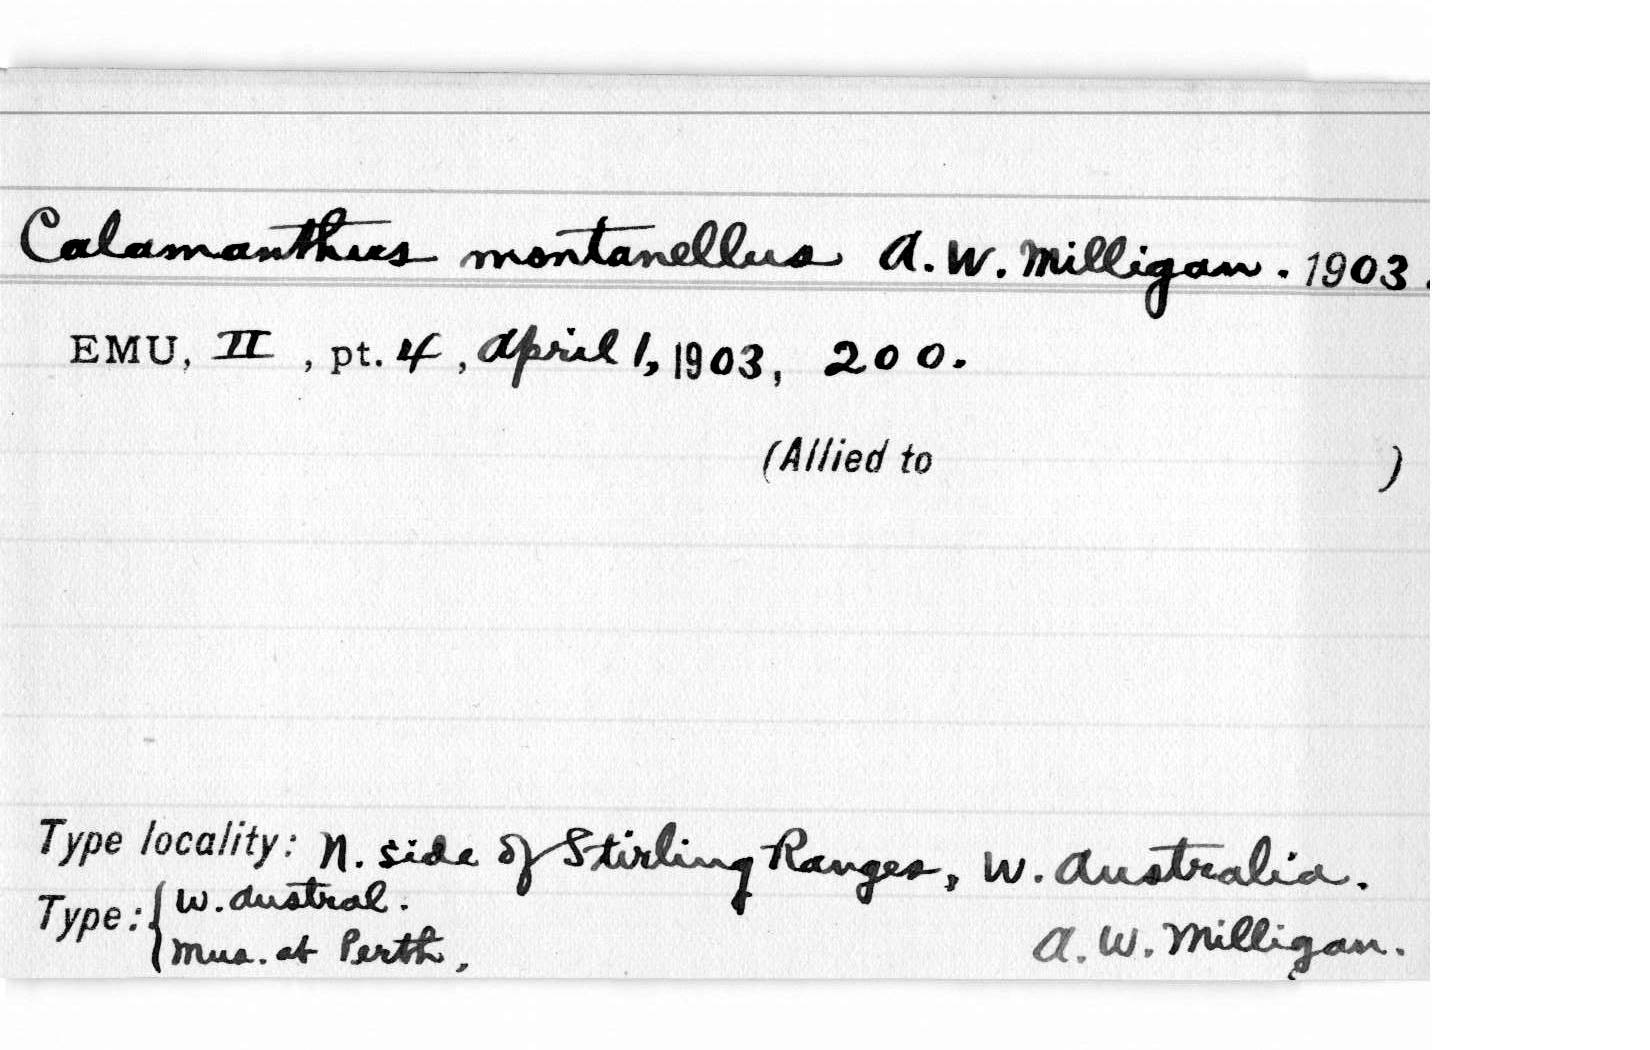 Calamanthus montanellus A. W. Milligan. 1903.
EMU, II, pt. 4, April 1, 1903, 200.
(Allied to )
Type locality: N. side of Stirling Ranges, W. Australia.
Type: { W. Austral.
Mus. at Perth, A. W. Milligan.